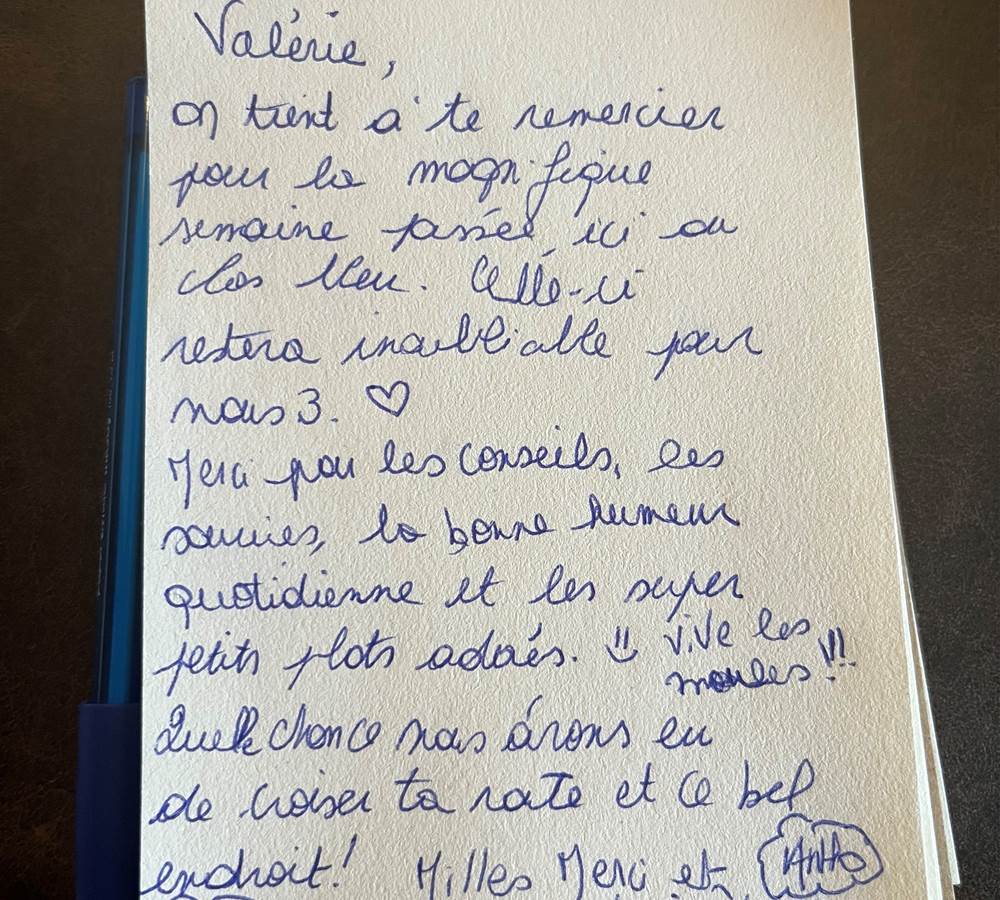 Valérie,
on tient à te remercier
pour la magnifique
semaine passée ici au
clos bleu. Celle-ci
restera inoubliable pour
nous 3. ♡
Merci pour les conseils, les
sourires, la bonne humeur
quotidienne et les super
petits plats adorés. Vive les
moules !!!
Quelle chance nous avons eu
de croiser ta route et ce bel
endroit! Milles Merci et